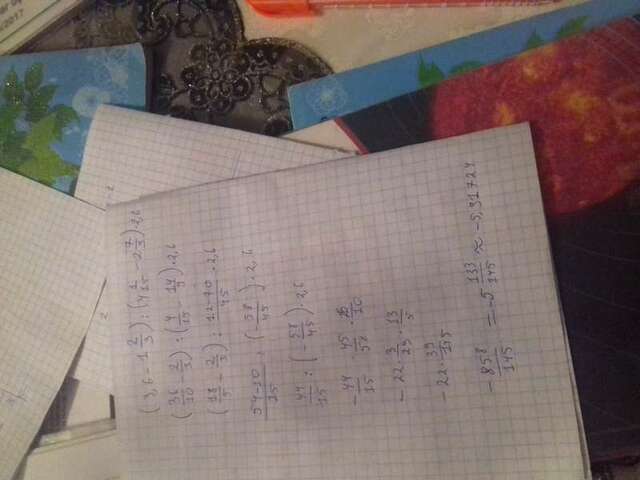 (3,6 - 1 2/3) : (4 1/15 - 2 7/3) · 2,6
(36/10 - 2/3) : (4/15 - 14/9) · 2,6
(18/5 - 2/3) : (12-70)/45 · 2,6
(54-10)/15 : (-58/45) · 2,6
44/15 : (-58/45) · 2,6
- 44/15 · 45/58 · 26/10
- 22 · 3/29 · 13/5
- 22 · 39/145
- 858/145 = -5 133/145 ≈ -5,91724